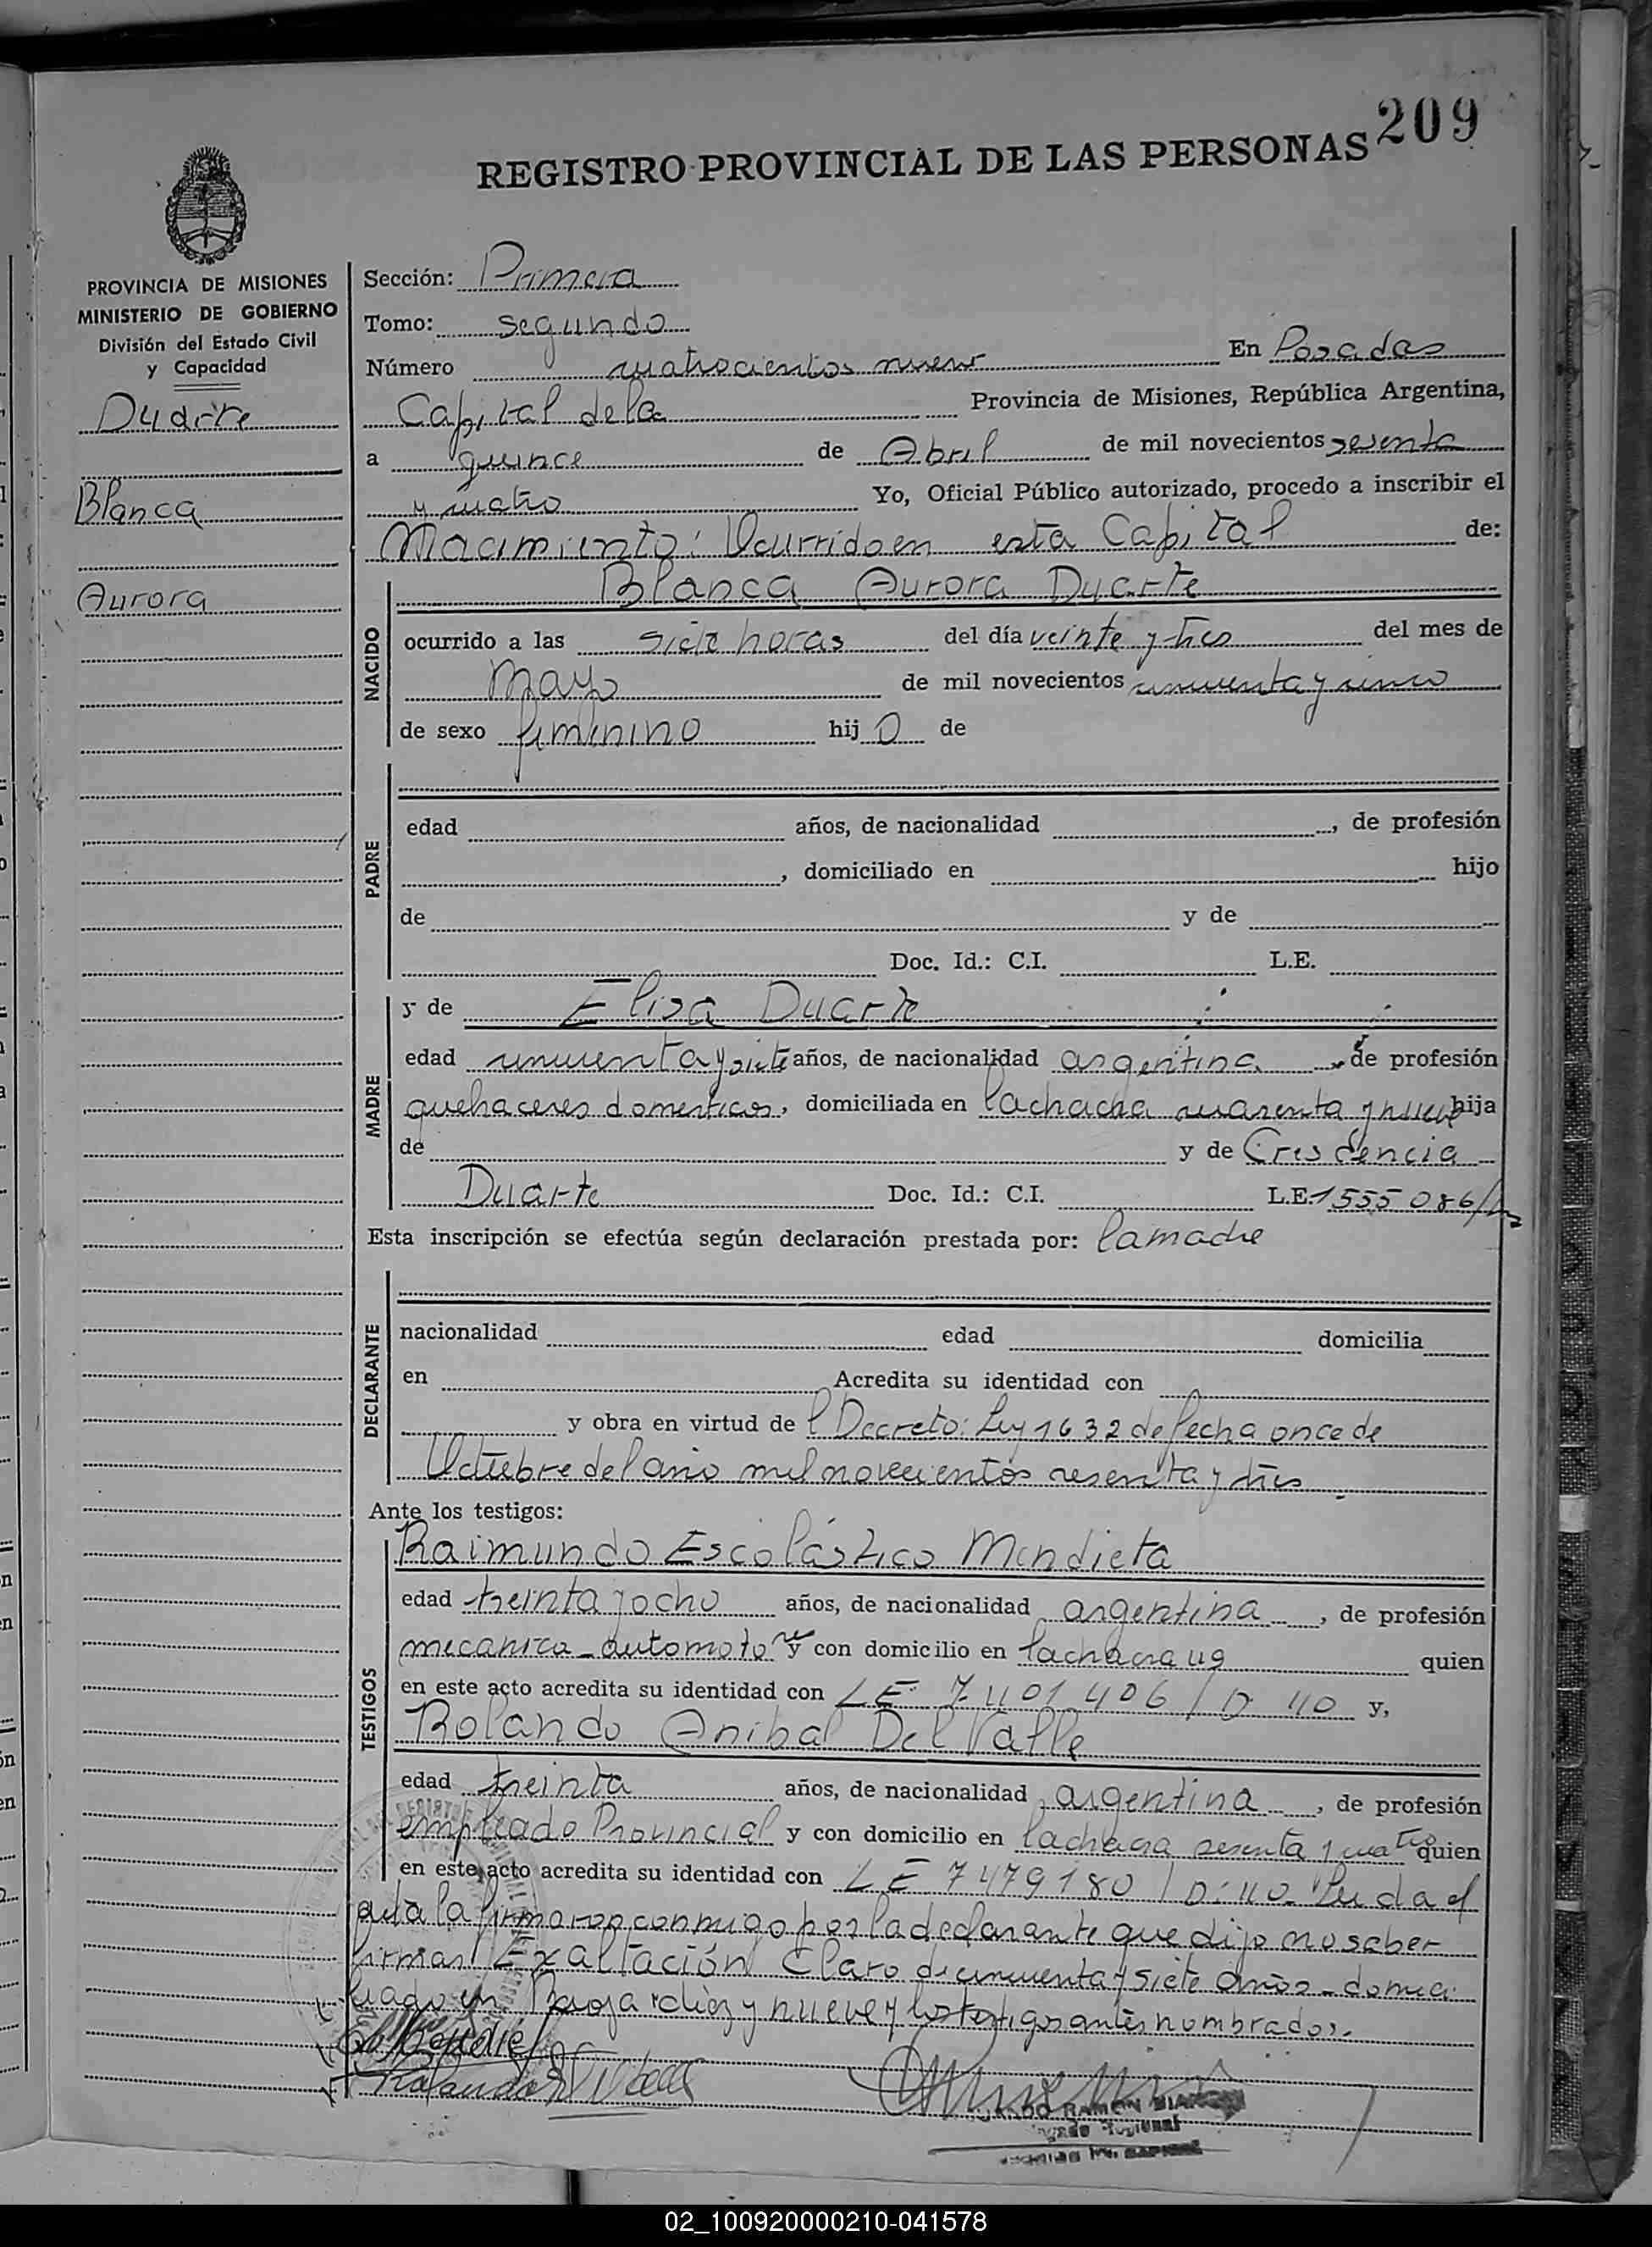 209
REGISTRO PROVINCIAL DE LAS PERSONAS
PROVINCIA DE MISIONES
MINISTERIO DE GOBIERNO
División del Estado Civil
y Capacidad
Duarte
Blanca
Aurora
Sección: Primera
Tomo: segundo
Número cuatrocientos nueve En Posadas
Capital de la Provincia de Misiones, República Argentina,
a quince de Abril de mil novecientos sesenta
y cuatro Yo, Oficial Público autorizado, procedo a inscribir el
Nacimiento: Ocurrido en esta Capital de:
NACIDO
Blanca Aurora Duarte
ocurrido a las siete horas del día veinte y tres del mes de
Mayo de mil novecientos cincuenta y cinco
de sexo femenino hij O de
PADRE
edad años, de nacionalidad , de profesión
, domiciliado en hijo
de y de
Doc. Id.: C.I. L.E.
MADRE
y de Elisa Duarte
edad cincuenta y siete años, de nacionalidad argentina de profesión
quehaceres domesticos, domiciliada en lachacha cuarenta y nueve hija
de y de Cresencia
Duarte Doc. Id.: C.I. L.E. 1555086/
Esta inscripción se efectúa según declaración prestada por: la madre
DECLARANTE
nacionalidad edad domicilia
en Acredita su identidad con
y obra en virtud de l Decreto: Ley 1632 de fecha once de
Octubre del año mil novecientos sesenta y tres
Ante los testigos:
TESTIGOS
Raimundo Escolástico Mendieta
edad treinta y ocho años, de nacionalidad argentina, de profesión
mecanica automotor y con domicilio en lachacra 49 quien
en este acto acredita su identidad con LE 7401406 / D 40 y,
Rolando Anibal Del Valle
edad treinta años, de nacionalidad argentina, de profesión
empleado Provincial y con domicilio en lachacra sesenta y cuatro quien
en este acto acredita su identidad con LE 7479180 / D: 40. Leida el
acta la firmaron conmigo por la declarante que dijo no saber
firmar Exaltación Claro de cincuenta y siete años domici
liado en Rioja diez y nueve y los testigos antes nombrados.
RAMON
02_100920000210-041578